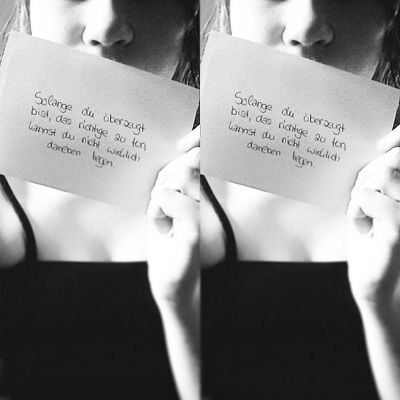 Solange du überzeugt
bist, das richtige zu tun,
kannst du nicht wirklich
daneben liegen.
Solange du überzeugt
bist, das richtige zu tun,
kannst du nicht wirklich
daneben liegen.